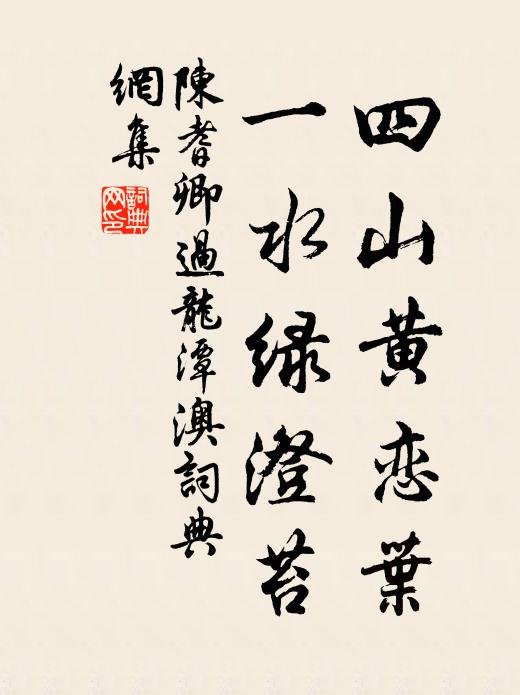 四山黄恋葉
一水绿澄苔
陳耆卿過龍潭澳詞典
網集
詞典網印